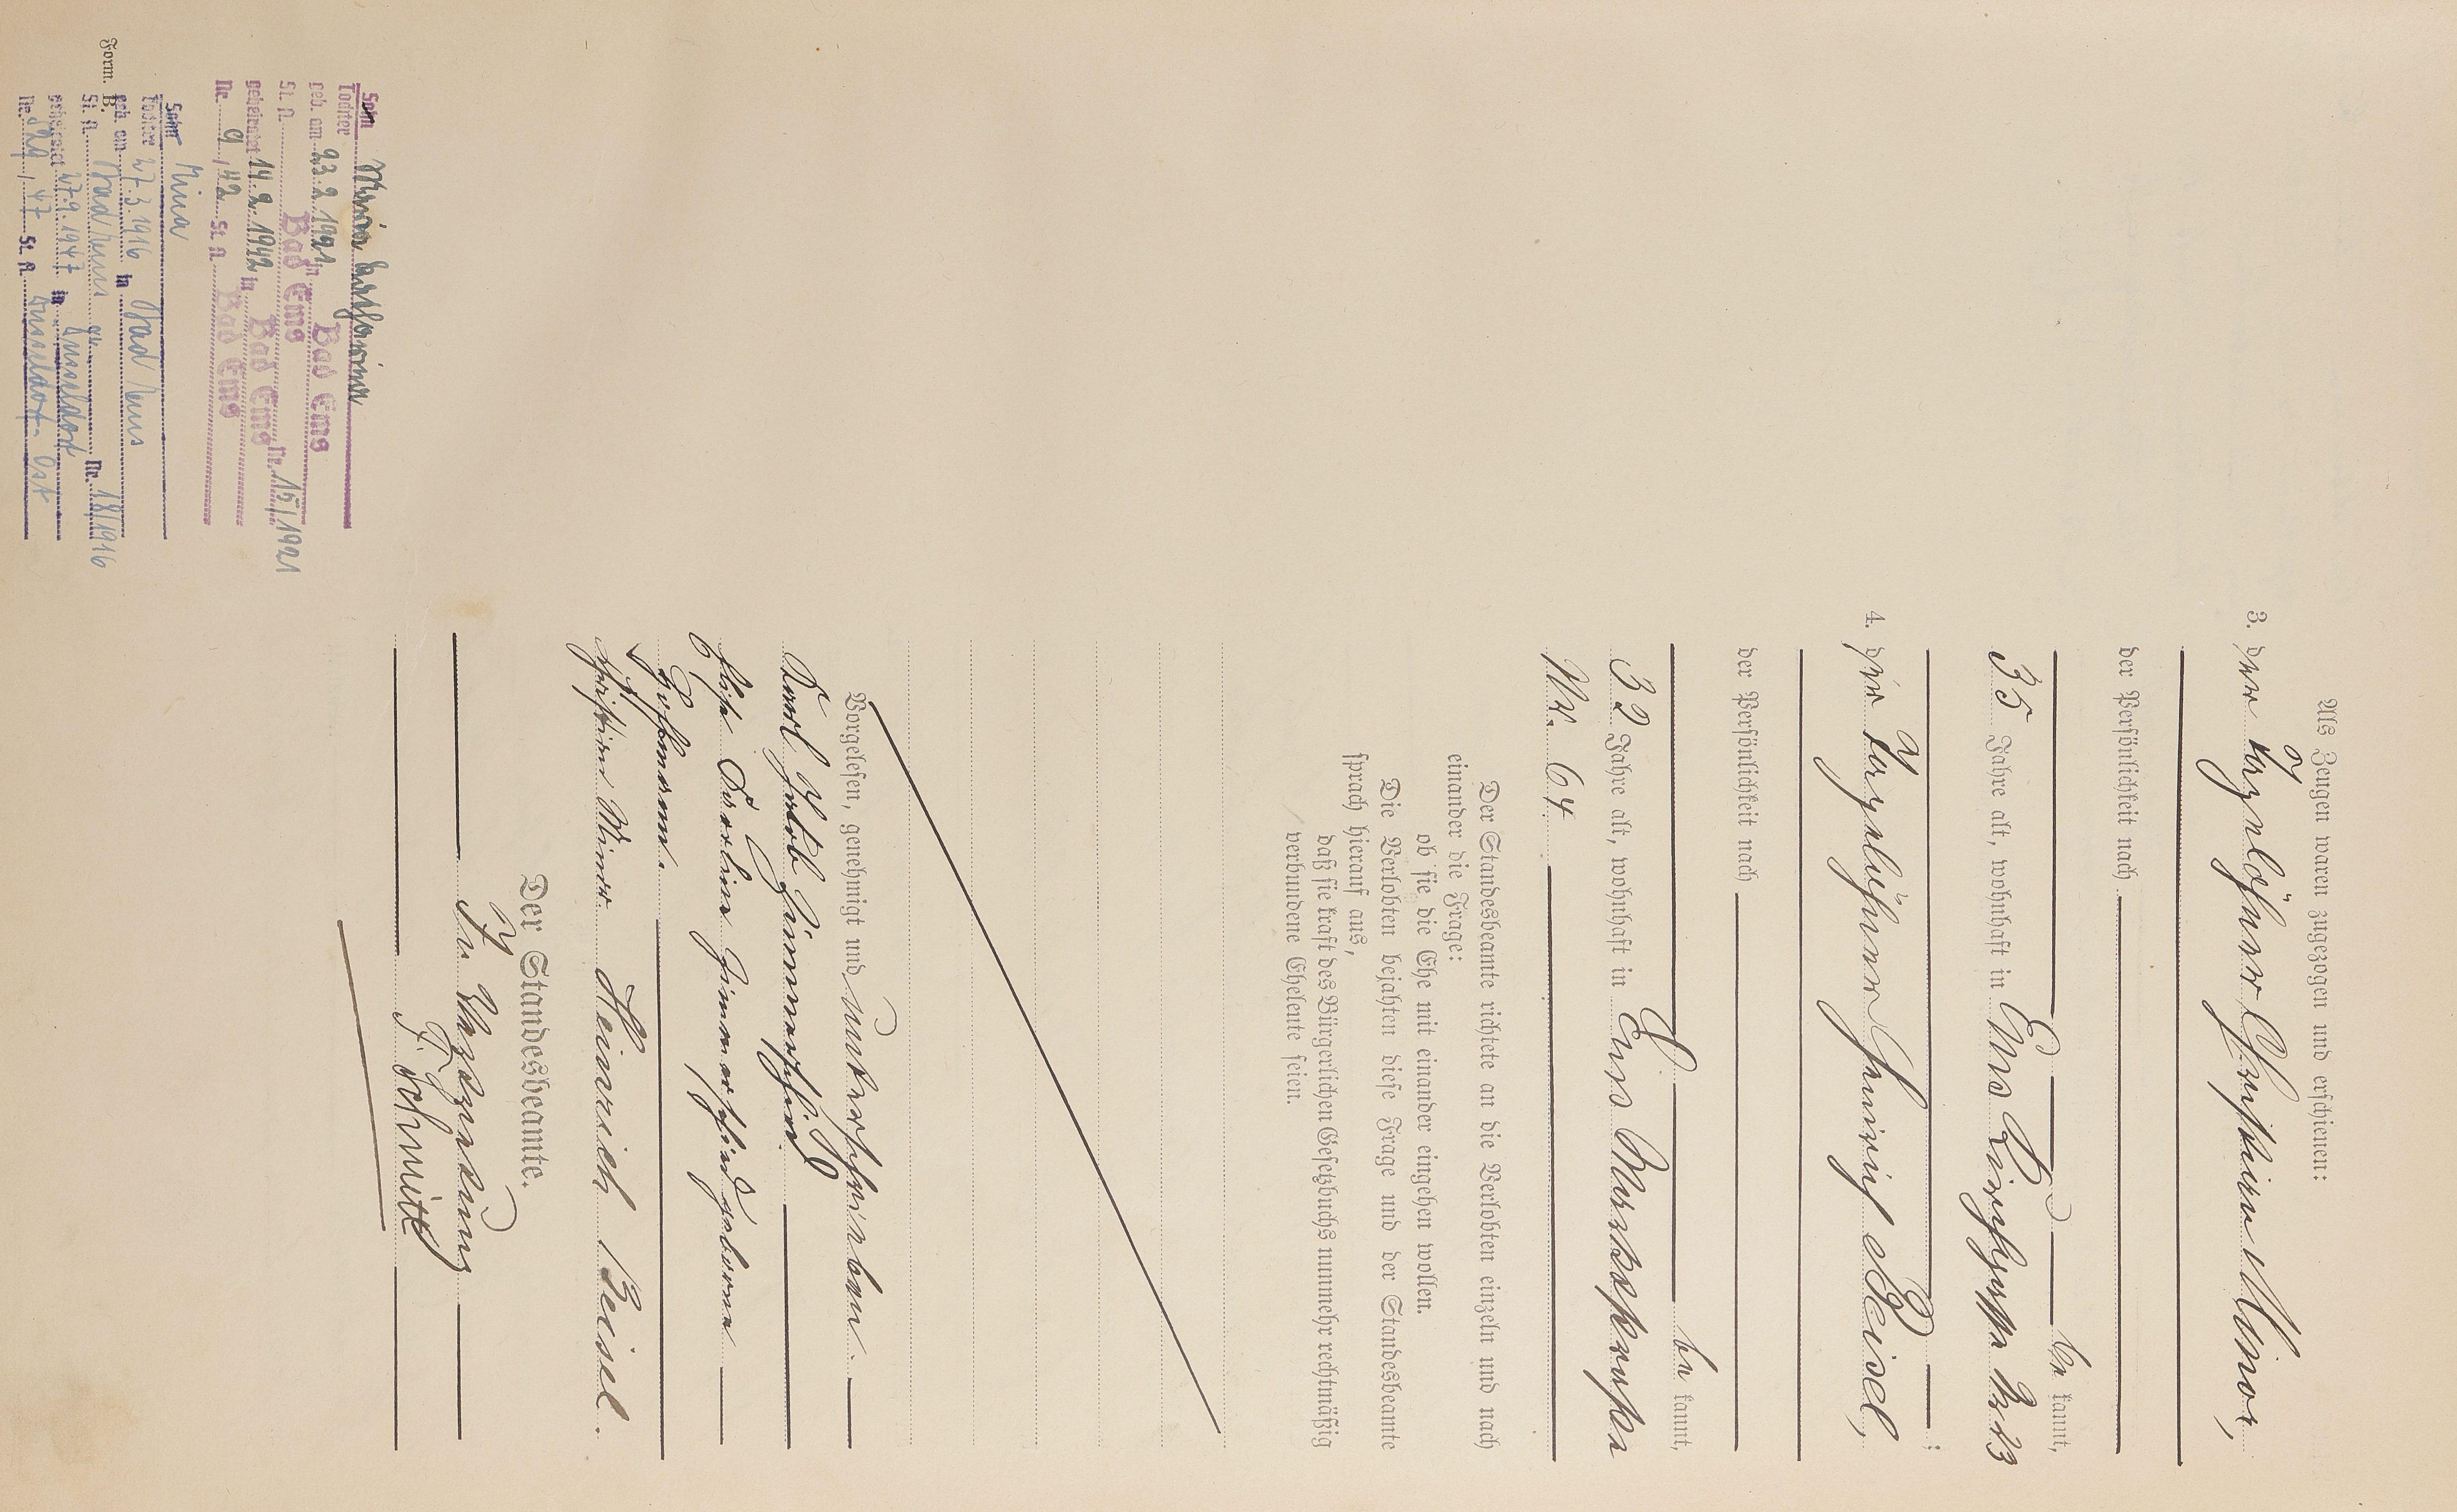 Als Zeugen waren zugezogen und erschienen:
3. der Tagelöhner Christian Minor,
der Persönlichkeit nach
be kannt,
35 Jahre alt, wohnhaft in Ems Kirchgasse Nr 13
4. der Tagelöhner Heinrich Beisel,
der Persönlichkeit nach
be kannt,
32 Jahre alt, wohnhaft in Ems
Nr. 64.
Der Standesbeamte richtete an die Verlobten einzeln und nach
einander die Frage:
ob sie die Ehe mit einander eingehen wollen.
Die Verlobten bejahten diese Frage und der Standesbeamte
sprach hierauf aus,
daß sie kraft des Bürgerlichen Gesetzbuchs nunmehr rechtmäßig
verbundene Eheleute seien.
Vorgelesen, genehmigt und unterschrieben.
Karl Jakob Zimmerschied
Karline Zimmerschied geborene
Hofmann.
Christian Minor Heinrich Beisel.
Der Standesbeamte.
In Vertretung
F. Schmitt
Sohn
Tochter Maria Katharina
geb. am 23.2.1921 in Bad Ems
St. A. Bad Ems Nr. 15/1921
geheiratet 14.2.1942 in Bad Ems
Nr. 9/42 St. A. Bad Ems
Sohn
Tochter Mina
geb. am 27.3.1916 in Bad Ems
St. A. Bad Ems Nr. 18/1916
geheiratet 27.9.1947 in Düsseldorf
Nr. /47 St. A. Düsseldorf-Ost
Form. B.